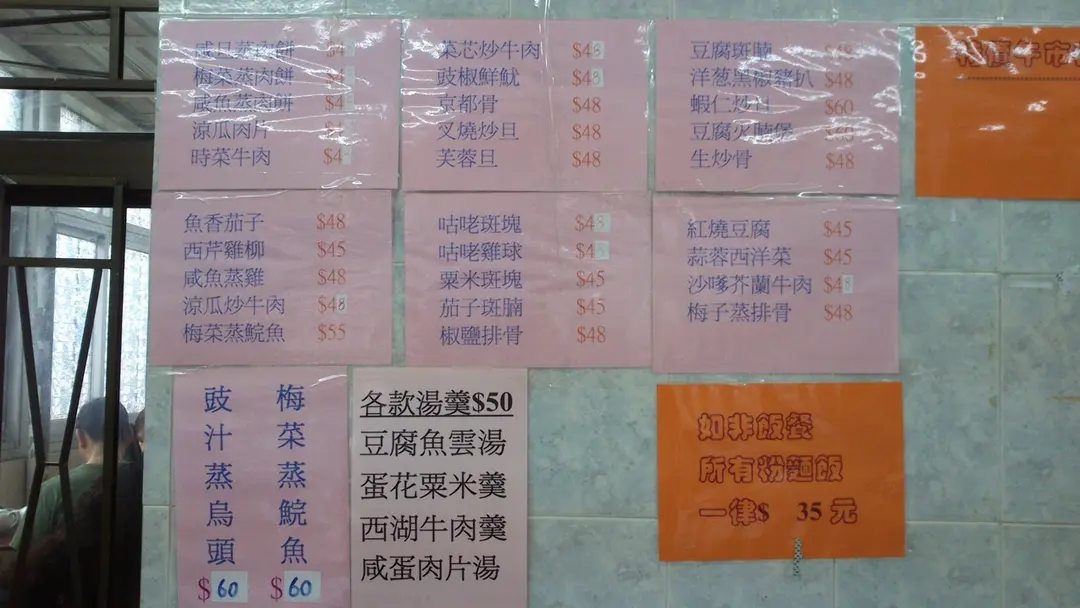 咸旦蒸肉餅 $4
梅菜蒸肉餅 $4
咸魚蒸肉餅 $4
涼瓜肉片 $4
時菜牛肉 $48
菜芯炒牛肉 $48
豉椒鮮魷 $48
京都骨 $48
叉燒炒旦 $48
芙蓉旦 $48
豆腐斑腩 $48
洋葱黑椒豬扒 $48
蝦仁炒旦 $60
豆腐火腩煲
生炒骨 $48
魚香茄子 $48
西芹雞柳 $45
咸魚蒸雞 $48
涼瓜炒牛肉 $48
梅菜蒸鯇魚 $55
咕咾斑塊 $48
咕咾雞球 $48
粟米斑塊 $45
茄子斑腩 $45
椒鹽排骨 $48
紅燒豆腐 $45
蒜蓉西洋菜 $45
沙嗲芥蘭牛肉 $48
梅子蒸排骨 $48
豉汁蒸烏頭 $60
梅菜蒸鯇魚 $60
各款湯羹$50
豆腐魚雲湯
蛋花粟米羹
西湖牛肉羹
咸蛋肉片湯
如非飯餐
所有粉麵飯
一律$ 35 元